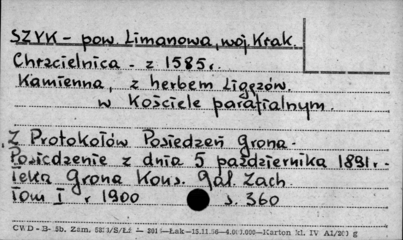 SZYK - pow. Limanowa, woj. Krak.
Chrzcielnica - z 1585 r.
Kamienna, z herbem Ligęzów
w Kościele parafialnym.
Z Protokołów Posiedzeń Grona.
Posiedzenie z dnia 5 października 1891 r. -
Teka Grona Kons. Gal. Zach.
Tom I r 1900 s. 360
CWD - B- 5b. Zam.